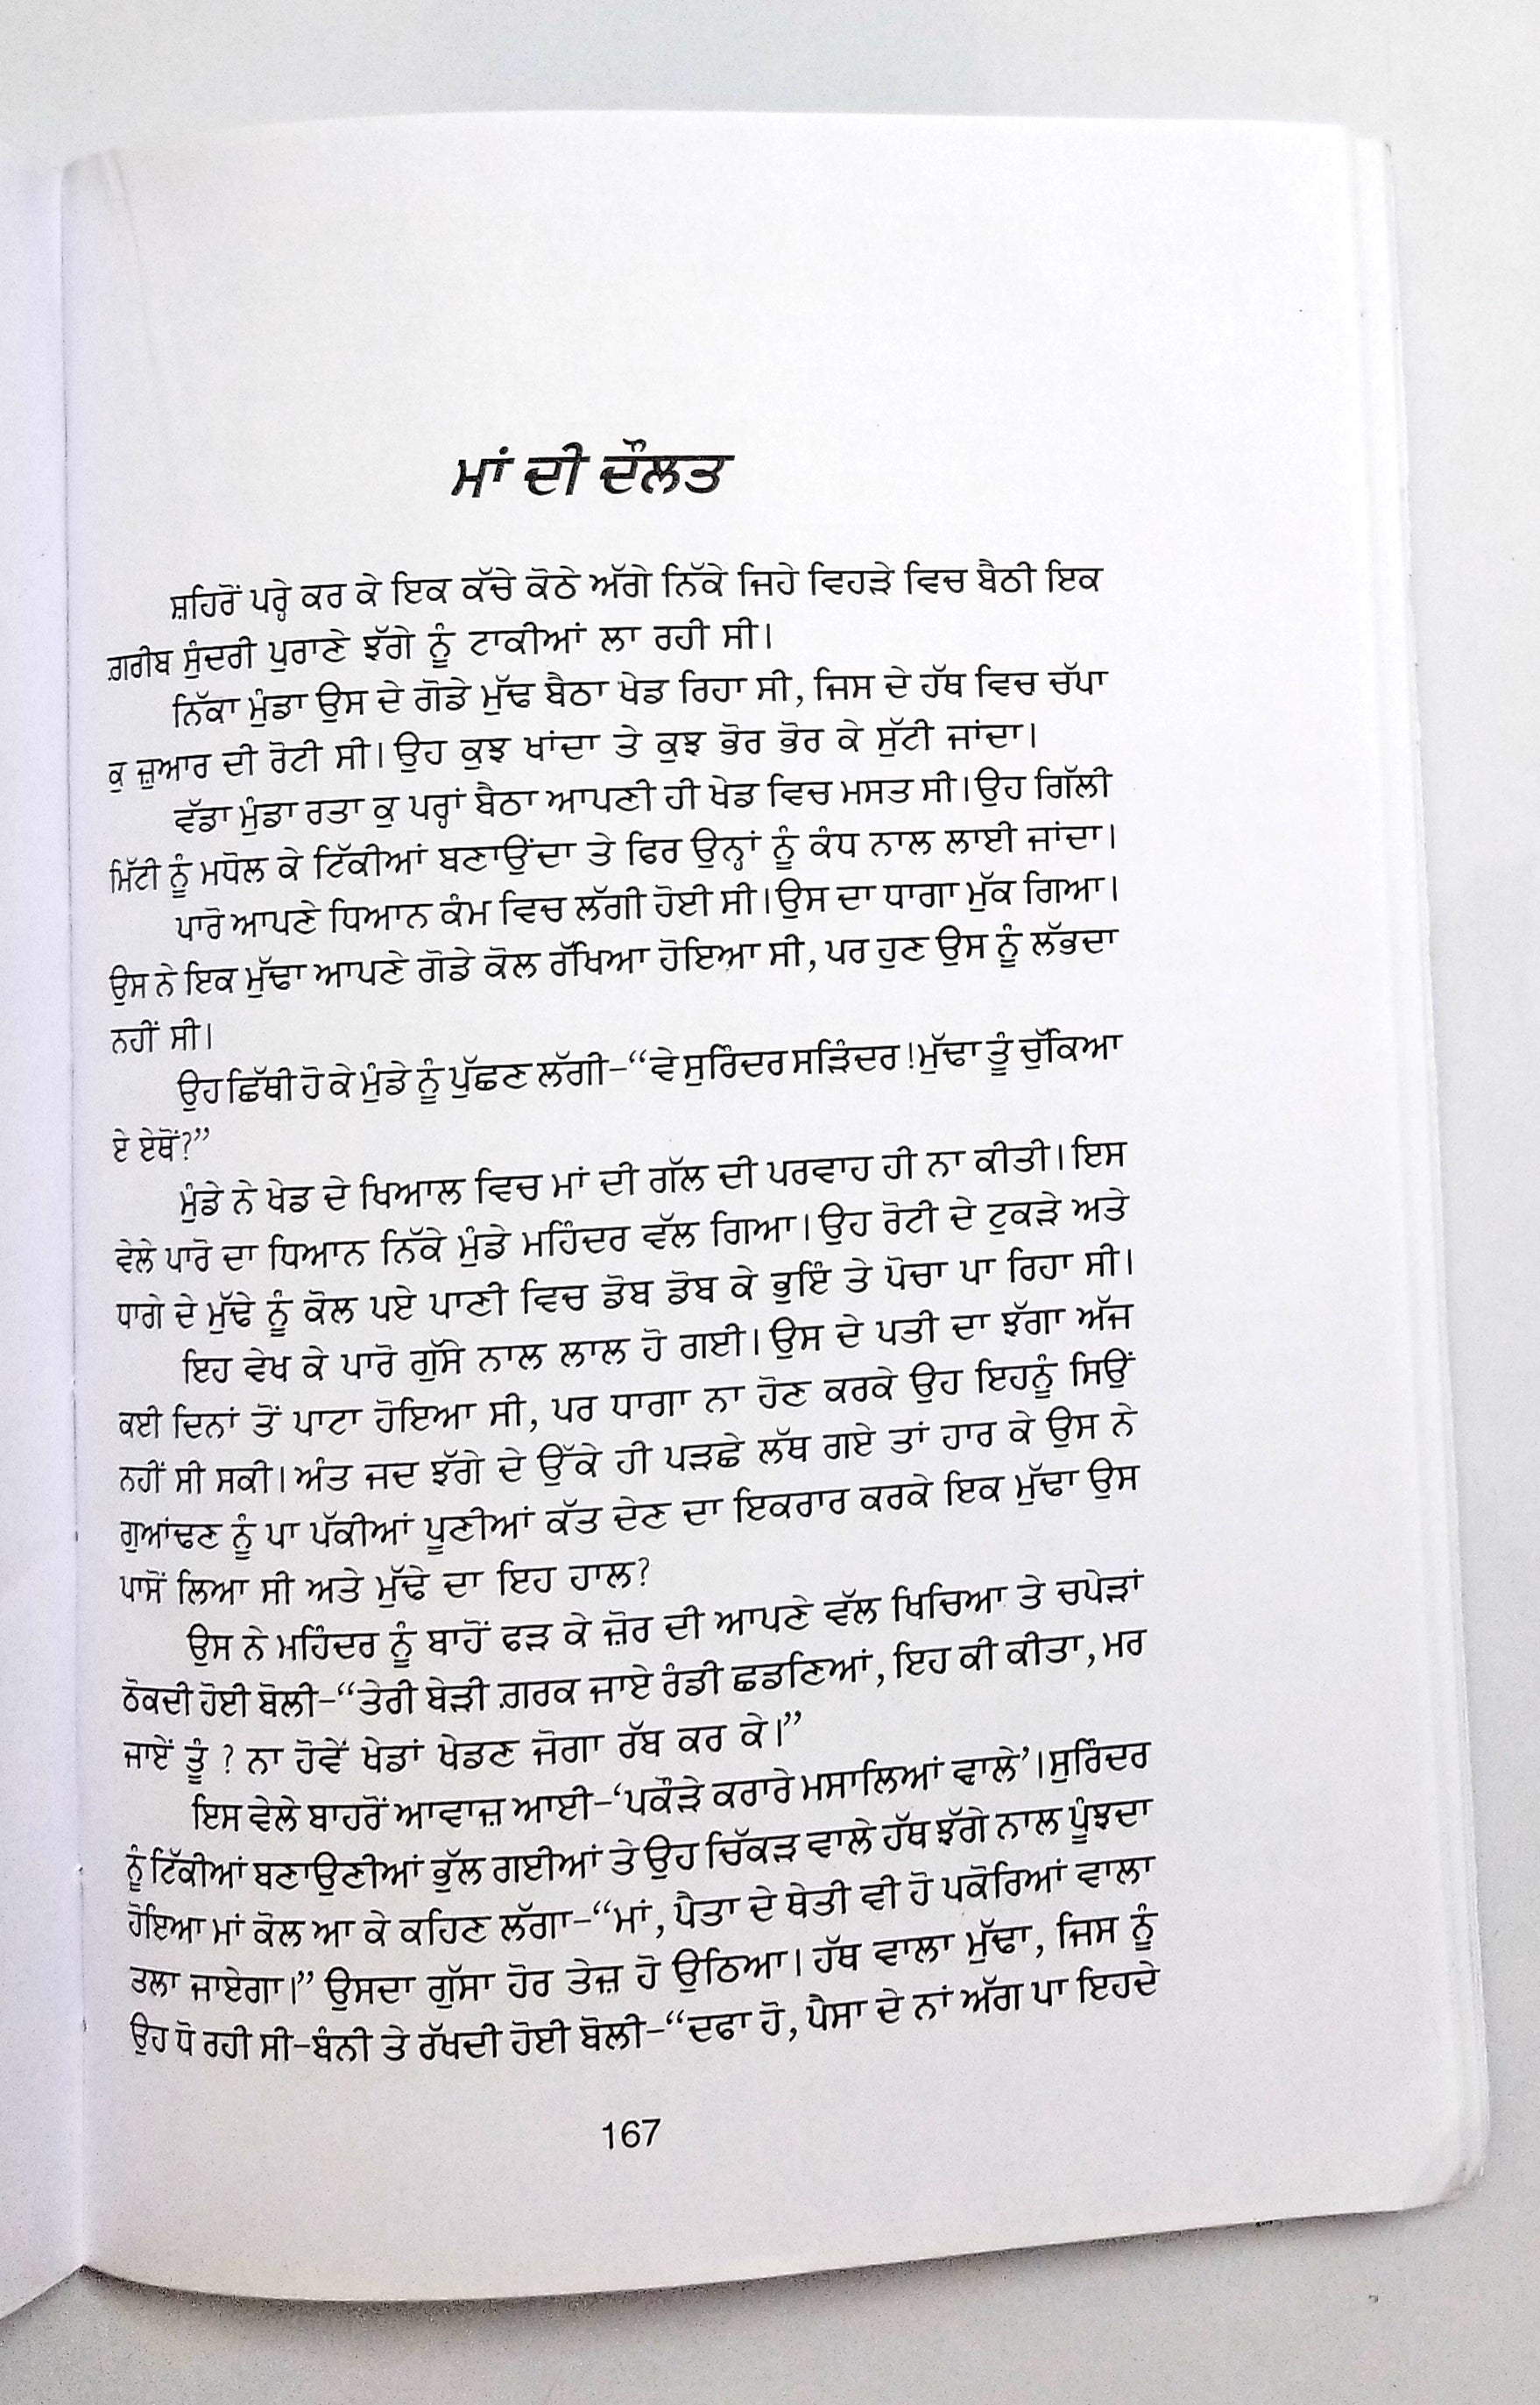 ਮਾਂ ਦੀ ਦੌਲਤ
ਸ਼ਹਿਰੋਂ ਪਰ੍ਹੇ ਕਰ ਕੇ ਇਕ ਕੱਚੇ ਕੋਠੇ ਅੱਗੇ ਨਿੱਕੇ ਜਿਹੇ ਵਿਹੜੇ ਵਿਚ ਬੈਠੀ ਇਕ
ਗ਼ਰੀਬ ਸੁੰਦਰੀ ਪੁਰਾਣੇ ਝੱਗੇ ਨੂੰ ਟਾਕੀਆਂ ਲਾ ਰਹੀ ਸੀ।
ਨਿੱਕਾ ਮੁੰਡਾ ਉਸ ਦੇ ਗੋਡੇ ਮੁੱਢ ਬੈਠਾ ਖੇਡ ਰਿਹਾ ਸੀ, ਜਿਸ ਦੇ ਹੱਥ ਵਿਚ ਚੱਪਾ
ਕੁ ਜ਼ੁਆਰ ਦੀ ਰੋਟੀ ਸੀ। ਉਹ ਕੁਝ ਖਾਂਦਾ ਤੇ ਕੁਝ ਭੋਰ ਭੋਰ ਕੇ ਸੁੱਟੀ ਜਾਂਦਾ।
ਵੱਡਾ ਮੁੰਡਾ ਰਤਾ ਕੁ ਪਰ੍ਹਾਂ ਬੈਠਾ ਆਪਣੀ ਹੀ ਖੇਡ ਵਿਚ ਮਸਤ ਸੀ। ਉਹ ਗਿੱਲੀ
ਮਿੱਟੀ ਨੂੰ ਮਧੋਲ ਕੇ ਟਿੱਕੀਆਂ ਬਣਾਉਂਦਾ ਤੇ ਫਿਰ ਉਨ੍ਹਾਂ ਨੂੰ ਕੰਧ ਨਾਲ ਲਾਈ ਜਾਂਦਾ।
ਪਾਰੋ ਆਪਣੇ ਧਿਆਨ ਕੰਮ ਵਿਚ ਲੱਗੀ ਹੋਈ ਸੀ। ਉਸ ਦਾ ਧਾਗਾ ਮੁੱਕ ਗਿਆ।
ਉਸ ਨੇ ਇਕ ਮੁੱਢਾ ਆਪਣੇ ਗੋਡੇ ਕੋਲ ਰੱਖਿਆ ਹੋਇਆ ਸੀ, ਪਰ ਹੁਣ ਉਸ ਨੂੰ ਲੱਭਦਾ
ਨਹੀਂ ਸੀ।
ਉਹ ਛਿੱਥੀ ਹੋ ਕੇ ਮੁੰਡੇ ਨੂੰ ਪੁੱਛਣ ਲੱਗੀ–“ਵੇ ਸੁਰਿੰਦਰ ਸੜਿੰਦਰ ! ਮੁੱਢਾ ਤੂੰ ਚੁੱਕਿਆ
ਏ ਏਥੋਂ?”
ਮੁੰਡੇ ਨੇ ਖੇਡ ਦੇ ਖਿਆਲ ਵਿਚ ਮਾਂ ਦੀ ਗੱਲ ਦੀ ਪਰਵਾਹ ਹੀ ਨਾ ਕੀਤੀ। ਇਸ
ਵੇਲੇ ਪਾਰੋ ਦਾ ਧਿਆਨ ਨਿੱਕੇ ਮੁੰਡੇ ਮਹਿੰਦਰ ਵੱਲ ਗਿਆ। ਉਹ ਰੋਟੀ ਦੇ ਟੁਕੜੇ ਅਤੇ
ਧਾਗੇ ਦੇ ਮੁੱਢੇ ਨੂੰ ਕੋਲ ਪਏ ਪਾਣੀ ਵਿਚ ਡੋਬ ਡੋਬ ਕੇ ਭੁਇੰ ਤੇ ਪੋਚਾ ਪਾ ਰਿਹਾ ਸੀ।
ਇਹ ਵੇਖ ਕੇ ਪਾਰੋ ਗੁੱਸੇ ਨਾਲ ਲਾਲ ਹੋ ਗਈ। ਉਸ ਦੇ ਪਤੀ ਦਾ ਝੱਗਾ ਅੱਜ
ਕਈ ਦਿਨਾਂ ਤੋਂ ਪਾਟਾ ਹੋਇਆ ਸੀ, ਪਰ ਧਾਗਾ ਨਾ ਹੋਣ ਕਰਕੇ ਉਹ ਇਹਨੂੰ ਸਿਉਂ
ਨਹੀਂ ਸੀ ਸਕੀ। ਅੰਤ ਜਦ ਝੱਗੇ ਦੇ ਉੱਕੇ ਹੀ ਪੜਛੇ ਲੱਥ ਗਏ ਤਾਂ ਹਾਰ ਕੇ ਉਸ ਨੇ
ਗੁਆਂਢਣ ਨੂੰ ਪਾ ਪੱਕੀਆਂ ਪੂਣੀਆਂ ਕੱਤ ਦੇਣ ਦਾ ਇਕਰਾਰ ਕਰਕੇ ਇਕ ਮੁੱਢਾ ਉਸ
ਪਾਸੋਂ ਲਿਆ ਸੀ ਅਤੇ ਮੁੱਢੇ ਦਾ ਇਹ ਹਾਲ?
ਉਸ ਨੇ ਮਹਿੰਦਰ ਨੂੰ ਬਾਹੋਂ ਫੜ ਕੇ ਜ਼ੋਰ ਦੀ ਆਪਣੇ ਵੱਲ ਖਿਚਿਆ ਤੇ ਚਪੇੜਾਂ
ਠੋਕਦੀ ਹੋਈ ਬੋਲੀ–“ਤੇਰੀ ਬੇੜੀ ਗ਼ਰਕ ਜਾਏ ਰੰਡੀ ਛਡਣਿਆਂ, ਇਹ ਕੀ ਕੀਤਾ, ਮਰ
ਜਾਏਂ ਤੂੰ ? ਨਾ ਹੋਵੇਂ ਖੇਡਾਂ ਖੇਡਣ ਜੋਗਾ ਰੱਬ ਕਰ ਕੇ।”
ਇਸ ਵੇਲੇ ਬਾਹਰੋਂ ਆਵਾਜ਼ ਆਈ–‘ਪਕੌੜੇ ਕਰਾਰੇ ਮਸਾਲਿਆਂ ਵਾਲੇ’। ਸੁਰਿੰਦਰ
ਨੂੰ ਟਿੱਕੀਆਂ ਬਣਾਉਣੀਆਂ ਭੁੱਲ ਗਈਆਂ ਤੇ ਉਹ ਚਿੱਕੜ ਵਾਲੇ ਹੱਥ ਝੱਗੇ ਨਾਲ ਪੂੰਝਦਾ
ਹੋਇਆ ਮਾਂ ਕੋਲ ਆ ਕੇ ਕਹਿਣ ਲੱਗਾ–“ਮਾਂ, ਪੈਤਾ ਦੇ ਥੇਤੀ ਵੀ ਹੋ ਪਕੋਰਿਆਂ ਵਾਲਾ
ਤਲਾ ਜਾਏਗਾ।” ਉਸਦਾ ਗੁੱਸਾ ਹੋਰ ਤੇਜ਼ ਹੋ ਉਠਿਆ। ਹੱਥ ਵਾਲਾ ਮੁੱਢਾ, ਜਿਸ ਨੂੰ
ਉਹ ਧੋ ਰਹੀ ਸੀ–ਬੰਨੀ ਤੇ ਰੱਖਦੀ ਹੋਈ ਬੋਲੀ–“ਦਫਾ ਹੋ, ਪੈਸਾ ਦੇ ਨਾਂ ਅੱਗ ਪਾ ਇਹਦੇ
167